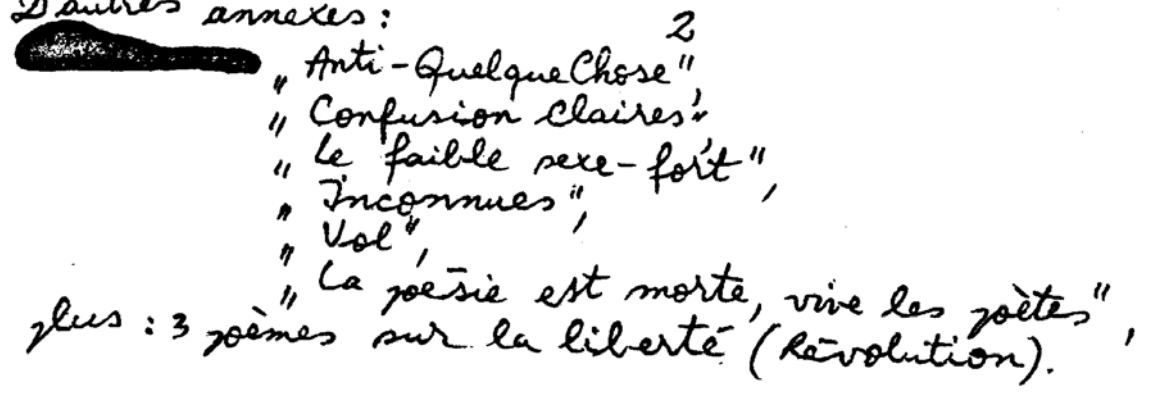 D'autres annexes :
2
„Anti-QuelqueChose",
„Confusion Claires",
„Le faible sexe-fort",
„Inconnues",
„Vol",
„La poésie est morte, vive les poètes",
plus : 3 poèmes sur la liberté (Révolution).